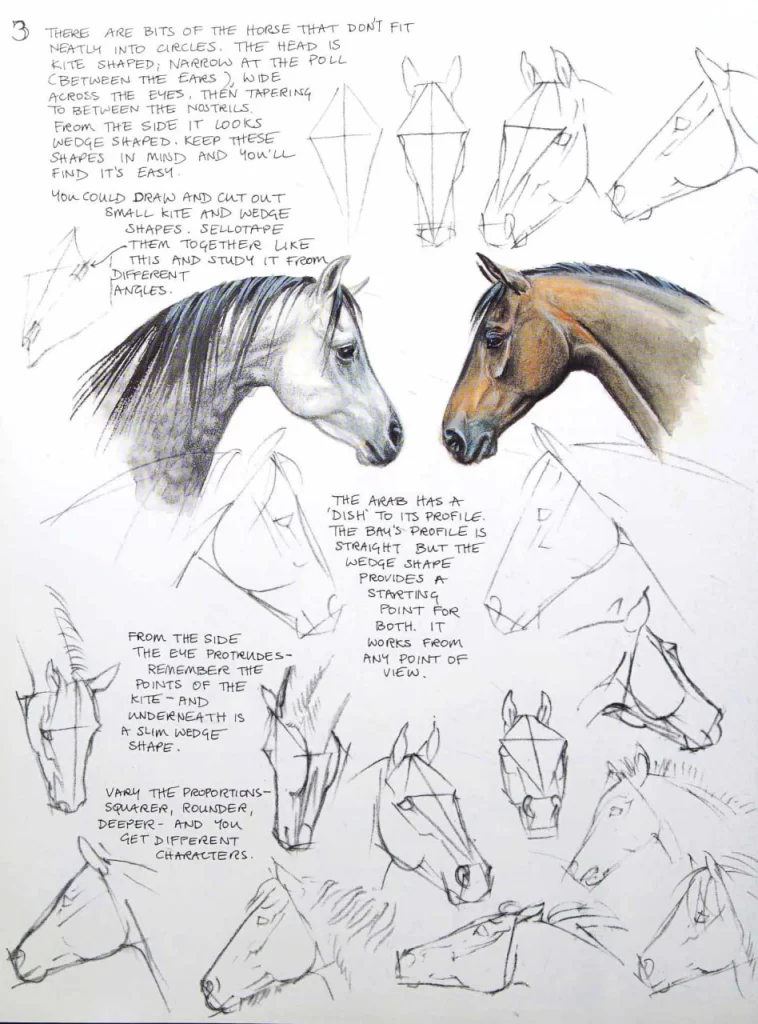 3
THERE ARE BITS OF THE HORSE THAT DON'T FIT
NEATLY INTO CIRCLES. THE HEAD IS
KITE SHAPED; NARROW AT THE POLL
(BETWEEN THE EARS), WIDE
ACROSS THE EYES, THEN TAPERING
TO BETWEEN THE NOSTRILS.
FROM THE SIDE IT LOOKS
WEDGE SHAPED. KEEP THESE
SHAPES IN MIND AND YOU'LL
FIND IT'S EASY.
YOU COULD DRAW AND CUT OUT
SMALL KITE AND WEDGE
SHAPES. SELLOTAPE
THEM TOGETHER LIKE
THIS AND STUDY IT FROM
DIFFERENT
ANGLES.
THE ARAB HAS A
'DISH' TO ITS PROFILE.
THE BAY'S PROFILE IS
STRAIGHT BUT THE
WEDGE SHAPE
PROVIDES A
STARTING
POINT FOR
BOTH. IT
WORKS FROM
ANY POINT OF
VIEW.
FROM THE SIDE
THE EYE PROTRUDES-
REMEMBER THE
POINTS OF THE
KITE - AND
UNDERNEATH IS
A SLIM WEDGE
SHAPE.
VARY THE PROPORTIONS-
SQUARER, ROUNDER,
DEEPER - AND YOU
GET DIFFERENT
CHARACTERS.